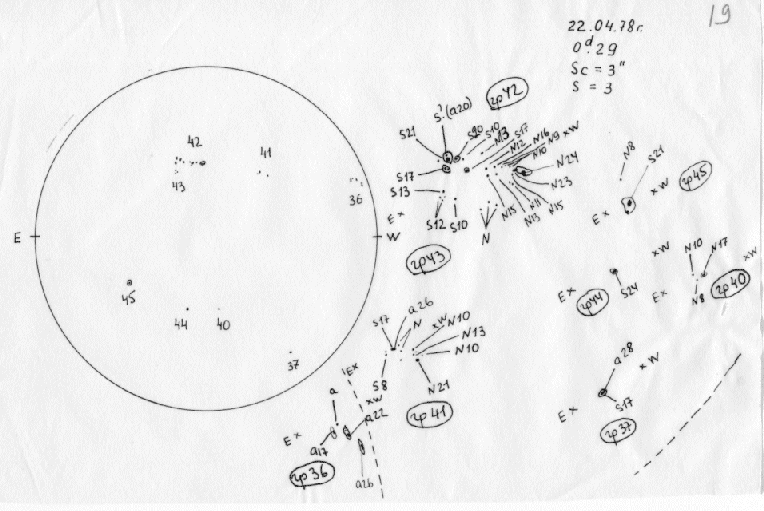 19
22.04.78г.
0ᵈ.29
Sc = 3"
S = 3
42
41
43
36
E
W
45
44
40
37
гр42
S'(a20)
S21
S20
S10
N3
S17
N16
xW
N12
N9
N10
N24
S17
N23
S13
E x
S12
S10
N
N15
N13
N11
N15
гр43
N8
S21
x W
гр45
E x
xW
E x
гр44
S24
N10
N17
xW
E x
гр40
N8
a26
S17
N
xW
N10
N13
N10
S8
N21
гр41
Ex
a
xW
a22
E x
a17
гр36
a26
a28
x W
E x
S17
гр37